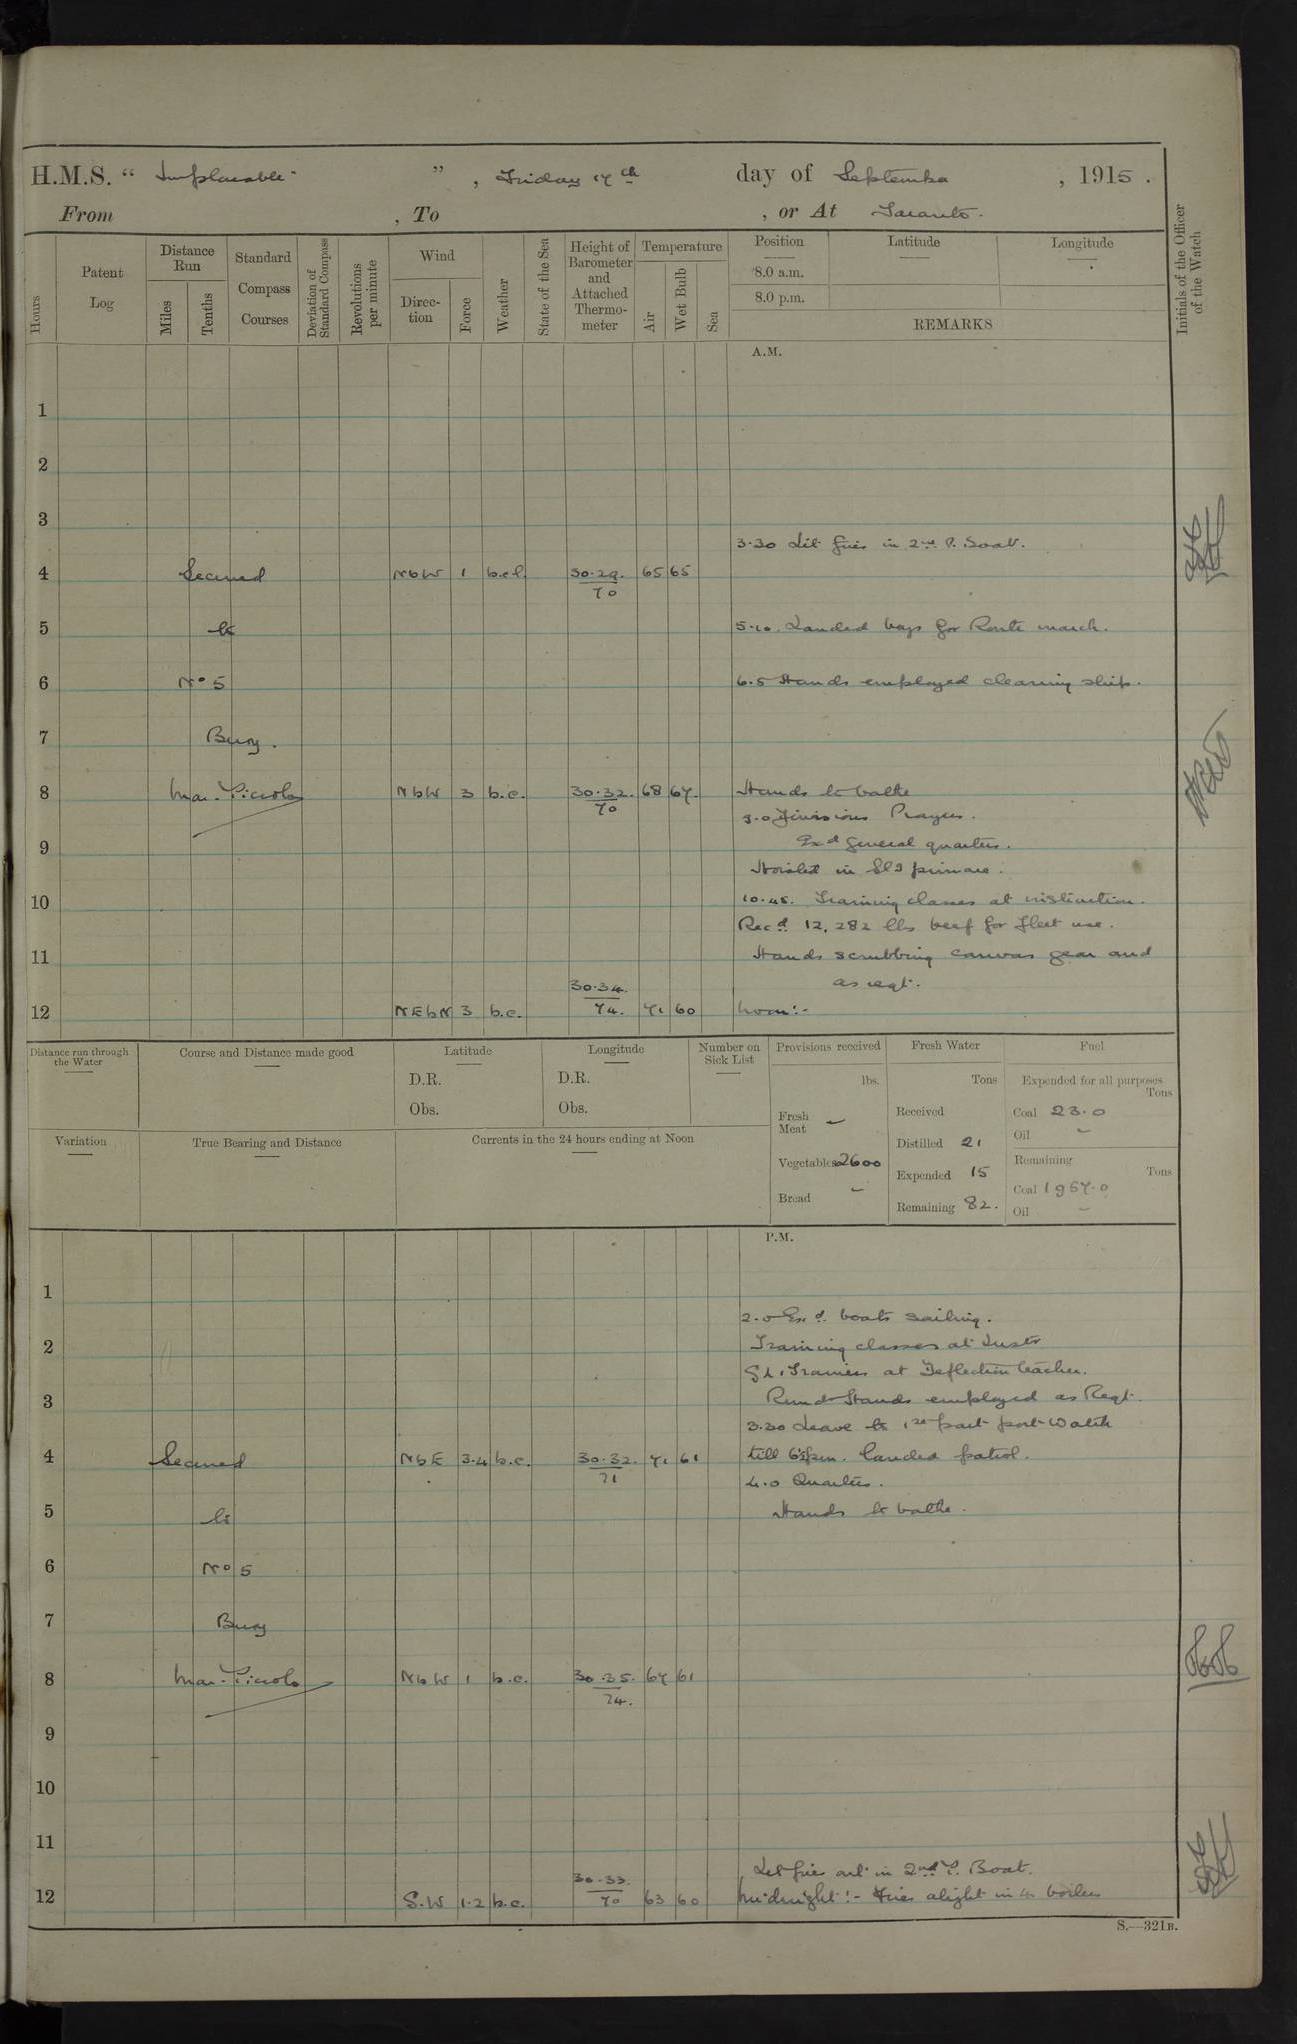 H.M.S. “ Implacable ” , Friday 17th day of September , 1915 .
From , To , or At Taranto.
Hours
Patent Log
Distance Run
Miles
Tenths
Standard Compass Courses
Deviation of Standard Compass
Revolutions per minute
Wind
Direction
Force
Weather
State of the Sea
Height of Barometer and Attached Thermometer
Temperature
Air
Wet Bulb
Sea
Position Latitude Longitude
8.0 a.m.
8.0 p.m.
REMARKS
Initials of the Officer of the Watch
A.M.
1
2
3
3.30 Lit fires in 2nd P. Boat.
4 Secured NbW 1 30.29. 70 65 65
5 to 5.10. Landed boys for Route march.
6 No 5 6.5 Hands employed cleaning ship.
7 Buoy.
8 Mar. Piccolo NbW 3 b.c. 30.32. 70 68 67. Hands to bathe
9.0 Divisions Prayers.
9 Exd General quarters.
Hoisted in pinnace.
10 10.45. Training classes at instruction.
Recd 12,282 lbs beef for fleet use.
11 Hands scrubbing canvas gear and
as reqt.
12 NEbN 3 b.c. 30.34. 74. 71 60 Noon:-
Distance run through the Water
Course and Distance made good
Latitude
D.R.
Obs.
Longitude
D.R.
Obs.
Number on Sick List
Provisions received
lbs.
Fresh Meat –
Vegetables 2600
Bread –
Fresh Water
Tons
Received
Distilled 21
Expended 15
Remaining 82.
Fuel
Expended for all purposes
Tons
Coal 23.0
Oil –
Remaining
Tons
Coal 1957.0
Oil –
Variation
True Bearing and Distance
Currents in the 24 hours ending at Noon
P.M.
1
2.0 Exd. boats sailing.
2 Training classes at Instr
G.L. Trainers at Deflection teacher.
3 Remdr Hands employed as Reqt.
3.30 Leave to 1st part port watch
4 Secured NbE 3.4 b.c. 30.32. 71 71 61 till 6½pm. Landed patrol.
4.0 Quarters.
5 to Hands to bathe.
6 No 5
7 Buoy
8 Mar. Piccolo NbW 1 b.c. 30.35. 74. 67 61
9
10
11
Let fires out in 2nd P. Boat.
12 S.W 1.2 b.c. 30.33. 70 63 60 Midnight:- Fires alight in 4 boilers
S.—321B.